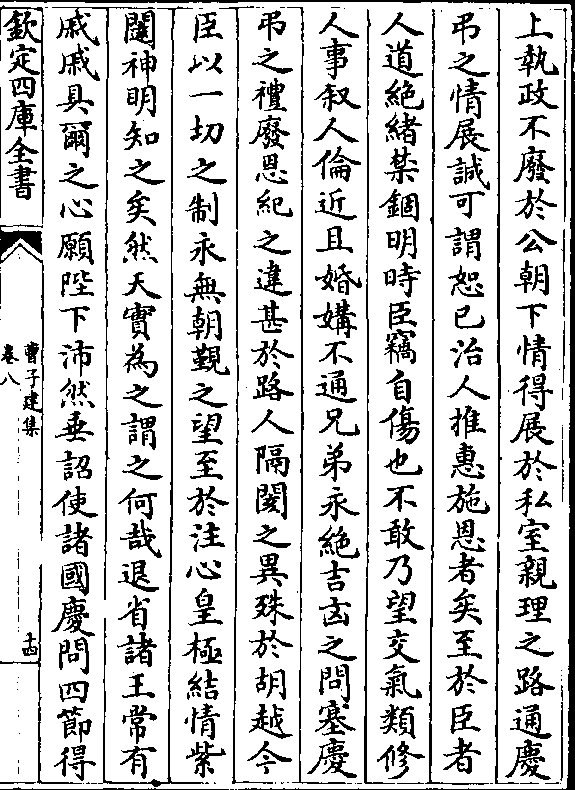 上執政不廢於公朝下情得展於私室親理之路通慶
弔之情展誠可謂恕已治人推惠施恩者矣至於臣者
人道絶緒禁錮明時臣竊自傷也不敢乃望交氣類修
人事叙人倫近且婚媾不通兄弟永絶吉凶之問塞慶
弔之禮廢恩紀之違甚於路人隔閡之異殊於胡越今
臣以一切之制永無朝覲之望至於注心皇極結情紫
闥神明知之矣然天實為之謂之何哉退省諸王常有
戚戚具爾之心願陛下沛然垂詔使諸國慶問四節得
欽定四庫全書
曹子建集
卷八
十四